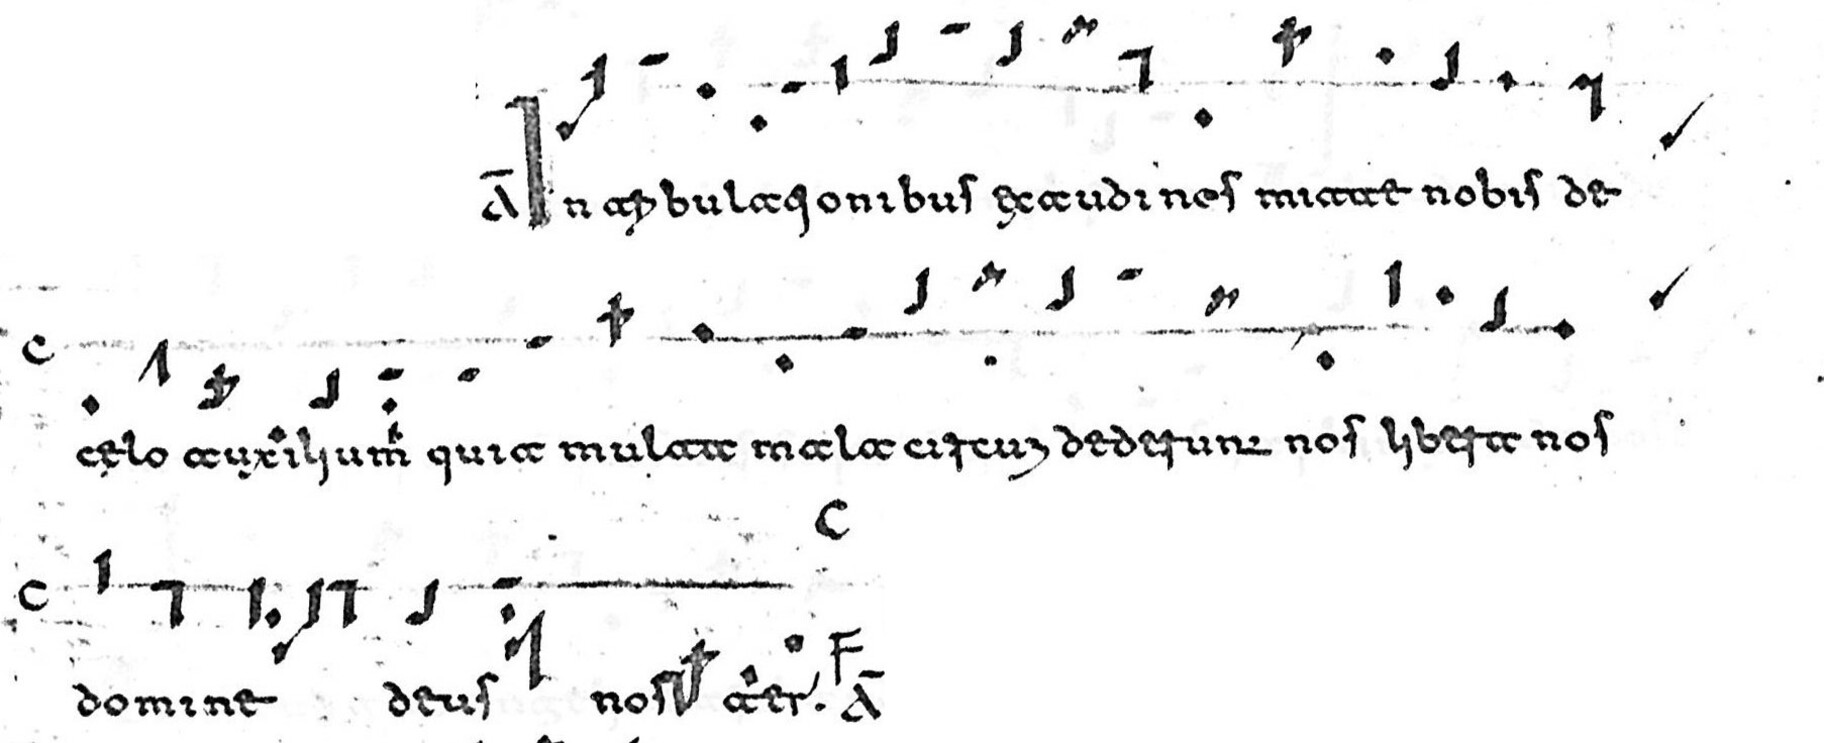 Ā In tribulationibus exaudi nos mitte nobis de
C
cęlo auxilium quia multa mala circum dederunt nos libera nos
C C
F
domine deus noster. Ā